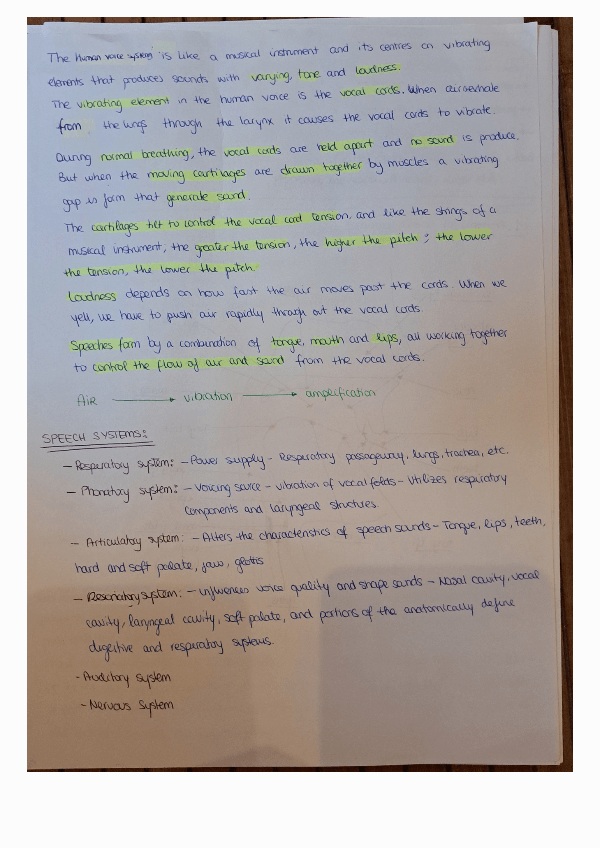 The human voice system is like a musical instrument and its centres on vibrating
elements that produces sounds with varying, tone and loudness.
The vibrating element in the human voice is the vocal cords. When air exhale
from the lungs through the larynx it causes the vocal cords to vibrate.
During normal breathing, the vocal cords are held apart and no sound is produce.
But when the moving cartilages are drawn together by muscles a vibrating
gap is form that generate sound.
The cartilages tilt to control the vocal cord tension, and like the strings of a
musical instrument, the greater the tension, the higher the pitch ; the lower
the tension, the lower the pitch.
Loudness depends on how fast the air moves past the cords. When we
yell, we have to push air rapidly through out the vocal cords.
Speeches form by a combination of tongue, mouth and lips, all working together
to control the flow of air and sound from the vocal cords.
AIR → vibration → amplification
SPEECH SYSTEMS:
- Respiratory system: - Power supply - Respiratory passageway, lungs, trachea, etc.
- Phonatory system: - Voicing source - vibration of vocal folds - Utilizes respiratory
components and laryngeal structures.
- Articulatory system: - Alters the characteristics of speech sounds - Tongue, lips, teeth,
hard and soft palate, jaw, glottis
- Resonatory system: - influences voice quality and shape sounds - Nasal cavity, vocal
cavity, laryngeal cavity, soft palate, and portions of the anatomically define
digestive and respiratory systems.
- Auditory system
- Nervous System